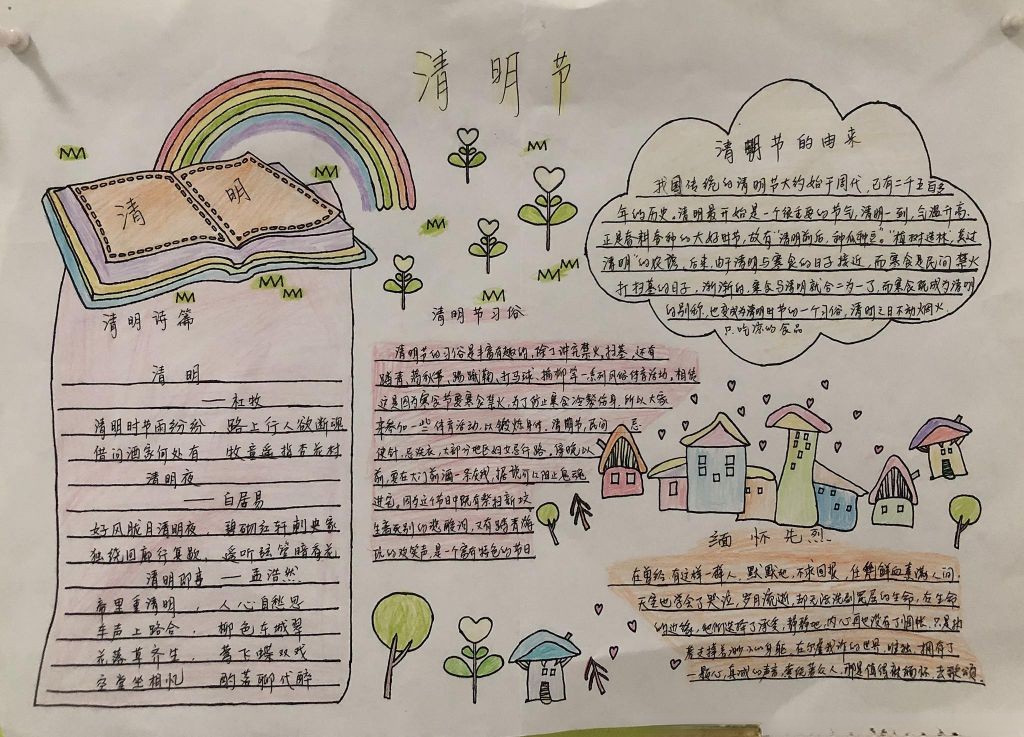 清明节
清明
清明诗篇
清明
——杜牧
清明时节雨纷纷 路上行人欲断魂
借问酒家何处有 牧童遥指杏花村
清明夜
——白居易
好风胧月清明夜， 碧砌红轩刺史家
独绕回廊行复歇 遥听弦管暗看花
清明即事 ——孟浩然
帝里重清明， 人心自愁思
车声上路合， 柳色东城翠
花落草齐生， 莺飞蝶双戏
空堂坐相忆 酌茗聊代醉
清明节习俗
清明节的习俗是丰富有趣的，除了讲究禁火、扫墓，还有
踏青、荡秋千、蹴鞠、打马球、插柳等一系列风俗体育活动。相传
这是因为寒食节要寒食禁火，为了防止寒食冷餐伤身，所以大家
来参加一些体育活动，以锻炼身体。清明节，民间 忌
使针，忌洗衣，大部分地区妇女忌行路。傍晚以
前，要在大门前洒一条灰线，据说可以阻止鬼魂
进宅。因为这个节日中既有祭扫新坟
生离死别的悲酸泪，又有踏青游
玩的欢笑声是一个富有特色的节日
清明节的由来
我国传统的清明节大约始于周代，已有二千五百多
年的历史。清明最开始是一个很重要的节气，清明一到，气温升高，
正是春耕春种的大好时节，故有“清明前后，种瓜种豆。”“植树造林，莫过
清明”的农谚。后来，由于清明与寒食的日子接近，而寒食是民间禁火
扫墓的日子，渐渐的，寒食与清明就合二为一了，而寒食既成为清明
的别称，也变成为清明时节的一个习俗，清明之日不动烟火，
只吃凉的食品
缅怀先烈
在曾经有这样一群人，默默地，不求回报，任凭鲜血素满人间，
天空也学会了哭泣，岁月流逝，却无法洗刷
的边缘，他们选择了承受，静静地，内心再也没有了惆怅，只是拍
的身躯，在尔虞我诈的世界，唯独，拥有了
一颗心，真诚的声音，那是值得被缅怀，去歌颂。